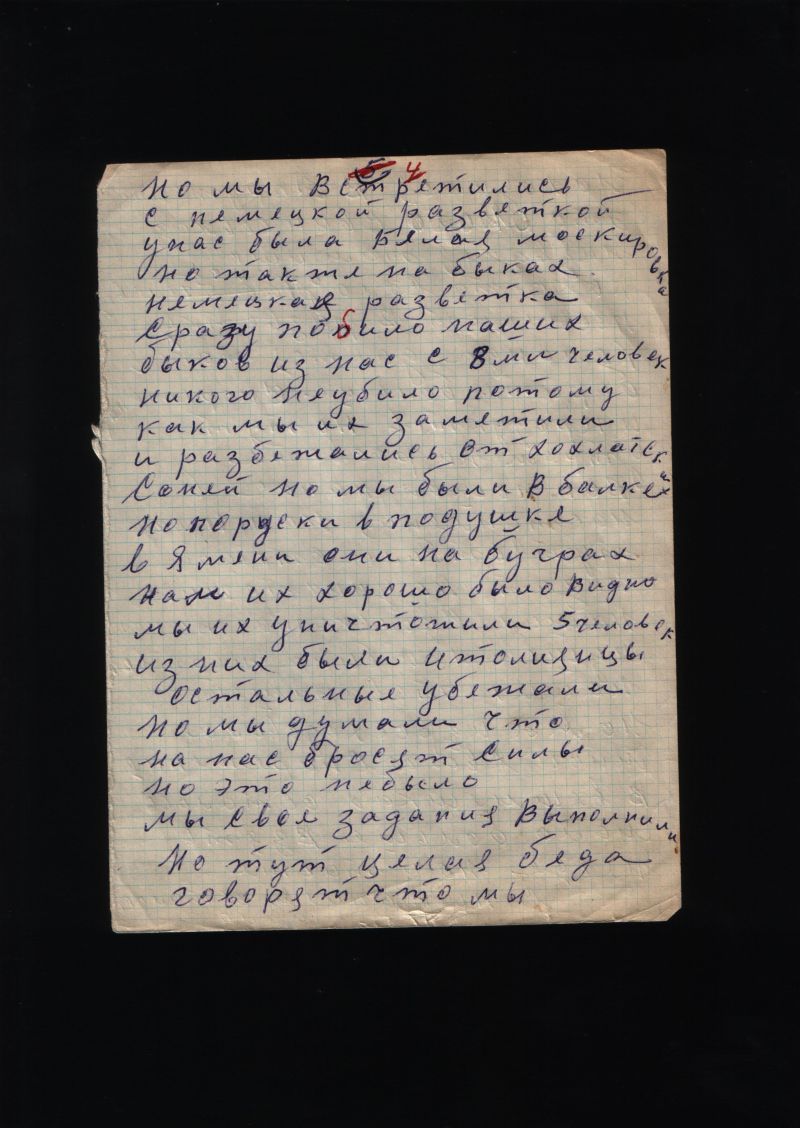 5 4
но мы встретились
с немецкой разветкой
унас была белая москировка
но также на быках
немецкая разветка
сразу побило наших
быков из нас с 8ми человек
никого неубило потому
как мы их заметили
и разбежались от хохлатских
Соней но мы были в балке
но пордски в подушке
в Ямени они на буграх
нам их хорошо было видно
мы их уничтожили 5 человек
из них были итолиянцы
остальные убежали
но мы думали что
на нас бросят силы
но это небыло
мы свое задания выполнили
но тут целая беда
говорят что мы